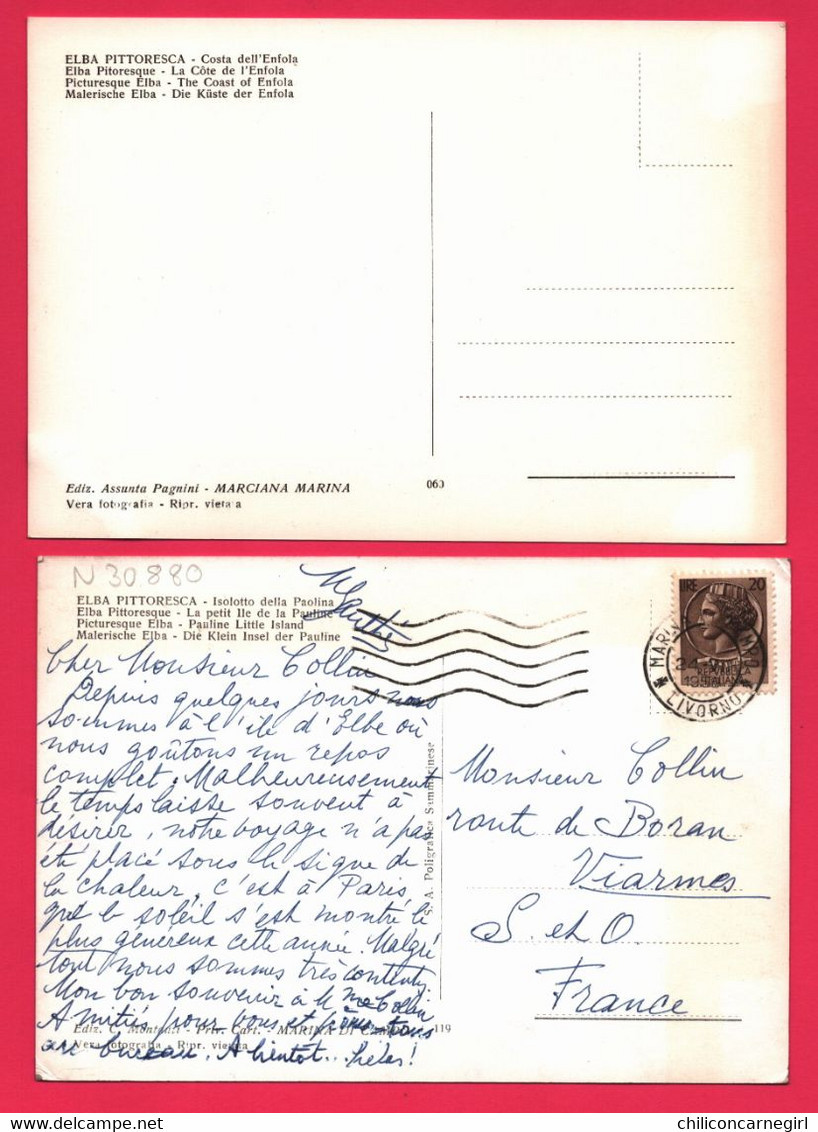 ELBA PITTORESCA - Costa dell'Enfola
Elba Pitoresque - La Côte de l'Enfola
Picturesque Elba - The Coast of Enfola
Malerische Elba - Die Küste der Enfola
Ediz. Assunta Pagnini - MARCIANA MARINA
Vera fotografia - Ripr. vietata
060
N 30880
ELBA PITTORESCA - Isolotto della Paolina
Elba Pittoresque - La petit Ile de la Pauline
Picturesque Elba - Pauline Little Island
Malerische Elba - Die Klein Insel der Pauline
Cher Monsieur Collin
Depuis quelques jours nous
sommes à l'île d'Elbe où
nous goûtons un repos
complet. Malheureusement
le temps laisse souvent à
désirer, notre voyage n'a pas
été placé sous le signe de
la chaleur, c'est à Paris
que le soleil s'est montré le
plus généreux cette année. Malgré
tout nous sommes très contents
Mon bon souvenir à Mme Collin
Amitiés pour vous et pour tous
au bureau. A bientôt... hélas!
Ediz. C. Montauti - Priv. Cart. - MARINA DI CAMPO
119
Vera fotografia - Ripr. vietata
S. A. Poligrafica Sammarinese
LIRE 20
REPUBBLICA
ITALIANA
MARINA CAMPO
LIVORNO
Monsieur Collin
route de Boran
Viarmes
S. et O.
France
delcampe.net
chiliconcarnegirl